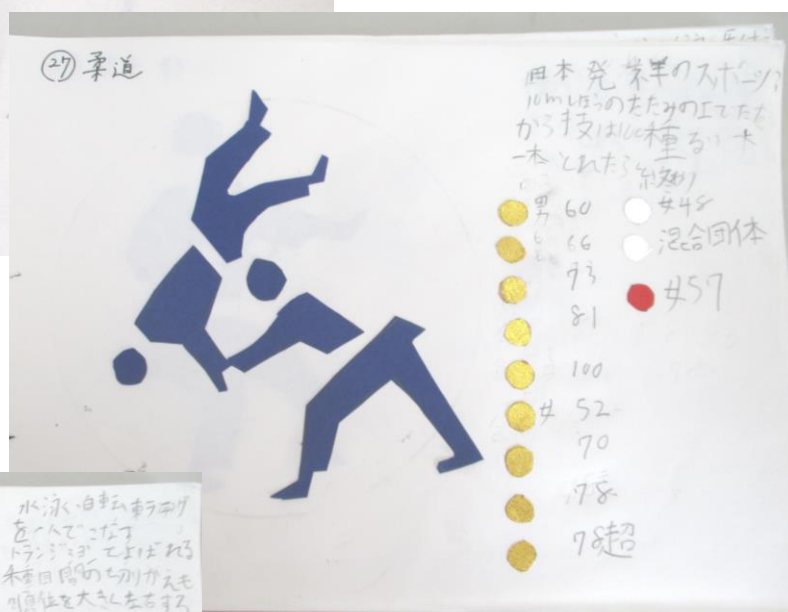 ㉗ 柔道
日本発祥のスポーツ
のたたみの上でたた
から技は100種
一本とれたら終わり
男 60
66
73
81
100
女 52
70
78
78超
女48
混合団体
女57
水泳、自転車ラニング
を一人でこなす
トランジションでよばれる
種目間の切りかえも
順位を大きく左右する